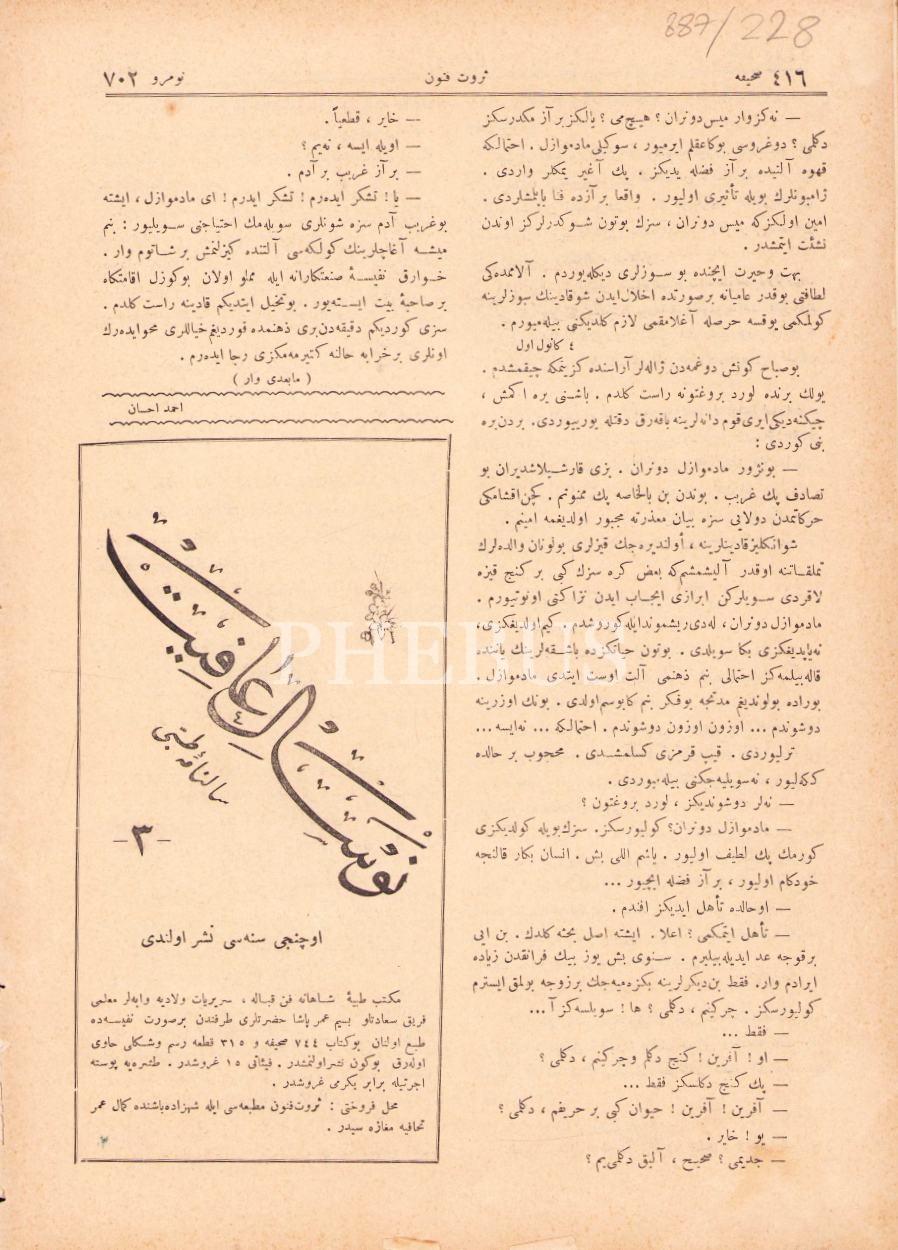 887/228
٤١٦ صحیفه
ثروت فنون
نومرو ٧٠٢
— نه‌کز وار میس دونران ؟ هیچ می ؟ یالکز بر آز مکدرسکز
دکلمی ؟ دوغروسی بوکا عقلم ایرمیور ، سوکیلی مادموازل . احتمالکه
قهوه آلتیده بر آز فضله یدیکز . پك آغیر یمکلر واردی .
ژامبونلرك بویله تأثیری اولیور . واقعا بر آزده فنا پایلمشلردی .
امین اولکزکه میس دونران ، سزك بوتون شو کدرلرکز اوندن
نشئت ایتمشدر .
بهت وحیرت ایچنده بو سوزلری دیکله‌یوردم . آلامده‌کی
لطافتی بوقدر عامیانه بر صورتده اخلال ایدن شو قادینك سوزلرینه
کولمکمی یوقسه حرصله آغلامقمی لازم کلدیکنی بیله‌میورم .
٤ کانون اول
بو صباح کونش دوغمه‌دن ژاله‌لر آراسنده کزینمکه چیقمشدم .
یولك برنده لورد بروغتونه راست کلدم . باشنی یره اکمش ،
چیکنه‌دیکی ایری قوم دانه‌لرینه باقه‌رق دقتله یوریوردی. بردن‌بره
بنی کوردی :
— بونژور مادموازل دونران . بزی قارشیلاشدیران بو
تصادف پك غریب . بوندن بن بالخاصه پك ممنونم . کچن اقشامکی
حرکاتمدن دولایی سزه بیان معذرته مجبور اولدیغمه امینم .
شو انکلیز قادینلرینه ، أولندیره‌جك قیزلری بولونان والده‌لرك
تملقاتنه اوقدر آلیشمشم‌که بعض کره سزك کبی بر کنج قیزه
لاقردی سویلرکن ابرازی ایجاب ایدن نزاکتی اونوتیورم .
مادموازل دونران ، له‌دی ریشموندایله کوروشدم . کیم اولدیغکزی،
نه یاپدیغکزی بکا سویلدی . بوتون حیاتکزده باشقه‌لرینك یاننده
قاله‌بیلمه‌کز احتمالی بنم ذهنمی آلت اوست ایتدی مادموازل .
بوراده بولوندیغم مدتجه بوفکر بنم کابوسم اولدی . بونك اوزرینه
دوشوندم ... اوزون اوزون دوشوندم . احتمالکه ... نه‌ایسه ...
ترلیوردی . قیپ قرمزی کسلمشدی . محجوب بر حالده
ککه‌لیور ، نه سویلیه‌جکنی بیله‌میوردی .
— نه‌لر دوشوندیکز ، لورد بروغتون ؟
— مادموازل دونران؟ کولیورسکز. سزك بویله کولدیکزی
کورمك پك لطیف اولیور . یاشم اللی بش . انسان بکار قالنجه
خودکام اولیور ، بر آز فضله ایچیور ...
— اوحالده تأهل ایدیکز افندم .
— تأهل ایتمکمی ؟ اعلا . ایشته اصل بحثه کلدك . بن ایی
بر قوجه عد ایدیله‌بیلیرم . سنوی بش یوز بیك فرانقدن زیاده
ایرادم وار. فقط بن دیکرلرینه بکزه‌میه‌جك بر زوجه بولمق ایسترم
کولیورسکز . چرکینم ، دکلمی ؟ ها ! سویلسه‌کز آ ...
— فقط ...
— او ! آفرین ! کنج دکلم و چرکینم ، دکلمی ؟
— پك کنج دکلسکز فقط ...
— آفرین ! آفرین ! حیوان کبی بر حریفم ، دکلمی ؟
— یو ! خایر .
— جدیمی ؟ صحیح ، آلیق دکلمی‌یم ؟
— خایر ، قطعیاً .
— اویله ایسه ، نه‌یم ؟
— بر آز غریب بر آدم .
— یا ! تشکر ایده‌رم ! تشکر ایدرم ! ای مادموازل ، ایشته
بو غریب آدم سزه شونلری سویله‌مك احتیاجنی سویلیور : بنم
میشه آغاچلرینك کولکه‌سی آلتنده کیزلنمش بر شاتوم وار .
خوارق نفیسهٔ صنعتکارانه ایله مملو اولان بو کوزل اقامتکاه
بر صاحبهٔ بیت ایسته‌یور . بو تخیل ایتدیکم قادینه راست کلدم .
سزی کوردیکم دقیقه‌دن بری ذهنمده قوردیغم خیاللری محو ایده‌رك
اونلری بر خرابه حالنه کتیرمه‌مکزی رجا ایده‌رم .
( مابعدی وار )
احمد احسان
نوسال عافیت
٤
سالنامهٔ طبی
— ٣ —
اوچنجی سنه‌سی نشر اولندی
مکتب طبیهٔ شاهانه فن قباله ، سریریات ولادیه وابه‌لر معلمی
فریق سعادتلو بسیم عمر پاشا حضرتلری طرفندن بر صورت نفیسه‌ده
طبع اولنان بوکتاب ٧٤٤ صحیفه و ٣١٥ قطعه رسم وشکلی حاوی
اوله‌رق بوکون نشر اولنمشدر . فیئاتی ١٥ غروشدر . طشره‌یه پوسته
اجرتیله برابر یکرمی غروشدر .
محل فروختی : ثروت فنون مطبعه‌سی ایله شهزاده باشنده کمال عمر
تحافیه مغازه سیدر .
PHEBUS